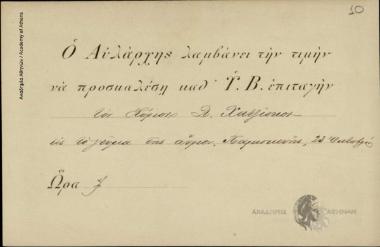 10
Ὁ Αὐλάρχης λαμβάνει τὴν τιμὴν
νὰ προσκαλέσῃ καθ' Ὑ. Β. ἐπιταγὴν
τὸν Κύριον Δ. Χατζίσκον
εἰς τὸ γεῦμα τῆς αὔριον, Παρασκευῆς, 22
Ὥρα
ΑΚΑΔΗΜΙΑ ΑΘΗΝΩΝ
Ακαδημία Αθηνών / Academy of Athens